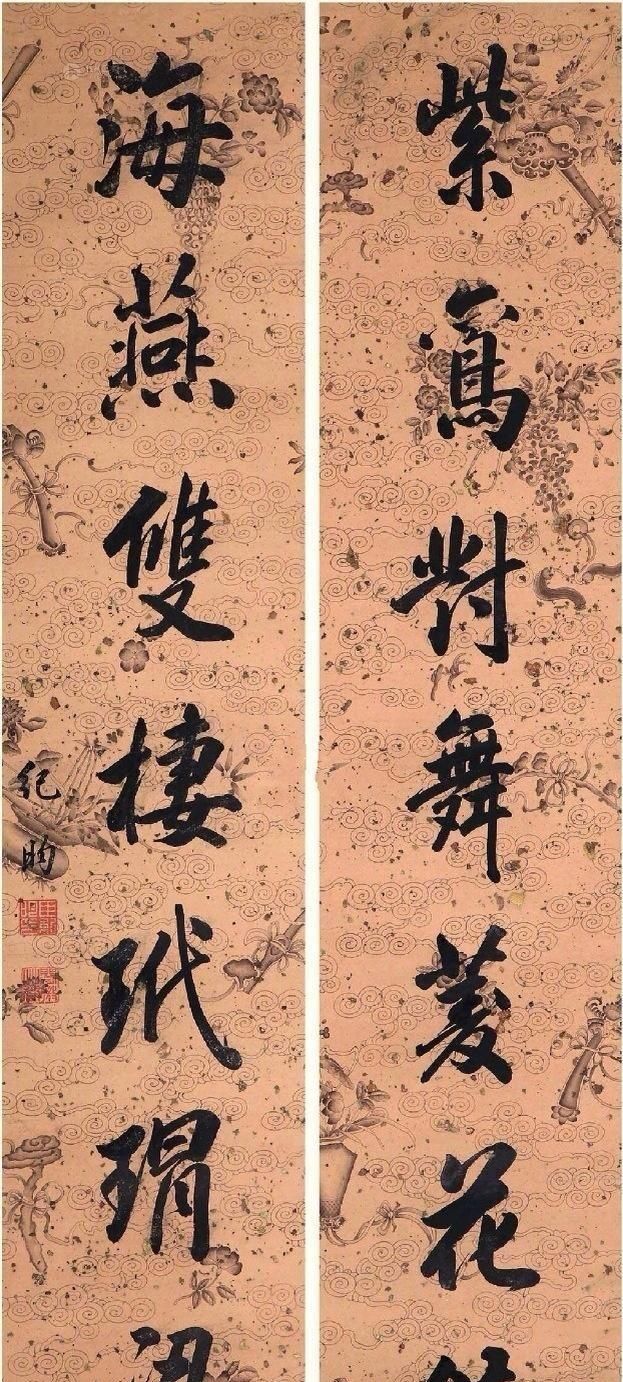 紫鸞對舞菱花
海燕雙棲玳瑁
紀昀